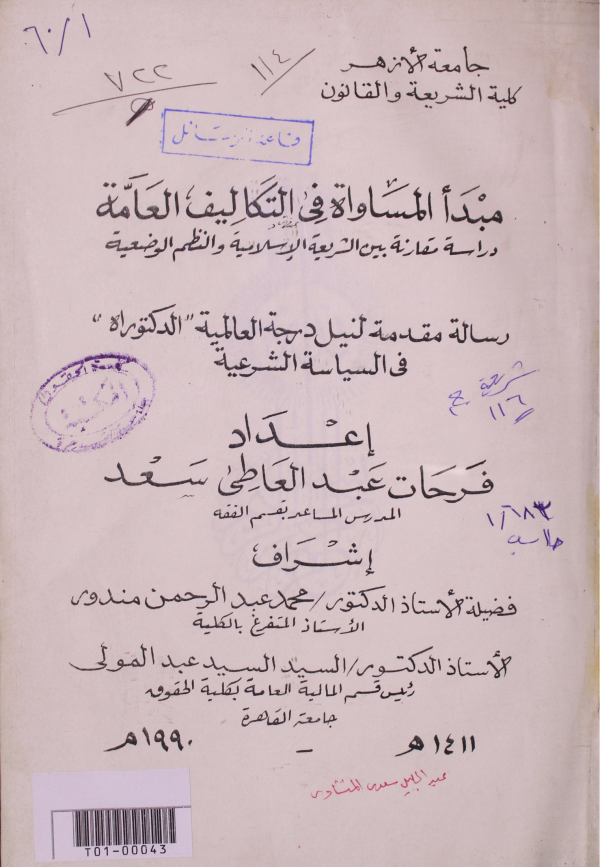 ٦٠/١
١١٤
٧٢٢
جامعة الأزهر
كلية الشريعة والقانون
قاعة الرسائل
مبدأ المساواة فى التكاليف العامة
دراسة مقارنة بين الشريعة الإسلامية والنظم الوضعية
رسالة مقدمة لنيل درجة العالمية "الدكتوراة"
فى السياسة الشرعية
شريعة
١١٦
إعداد
فرحات عبد العاطى سعد
المدرس المساعد بقسم الفقه
١/١٨٣
حاسب
إشراف
فضيلة الأستاذ الدكتور/محمد عبد الرحمن مندور
الأستاذ المتفرغ بالكلية
الأستاذ الدكتور/السيد السيد عبد المولى
رئيس قسم المالية العامة بكلية الحقوق
جامعة القاهرة
١٤١١ هـ – ١٩٩٠ م
T01-00043